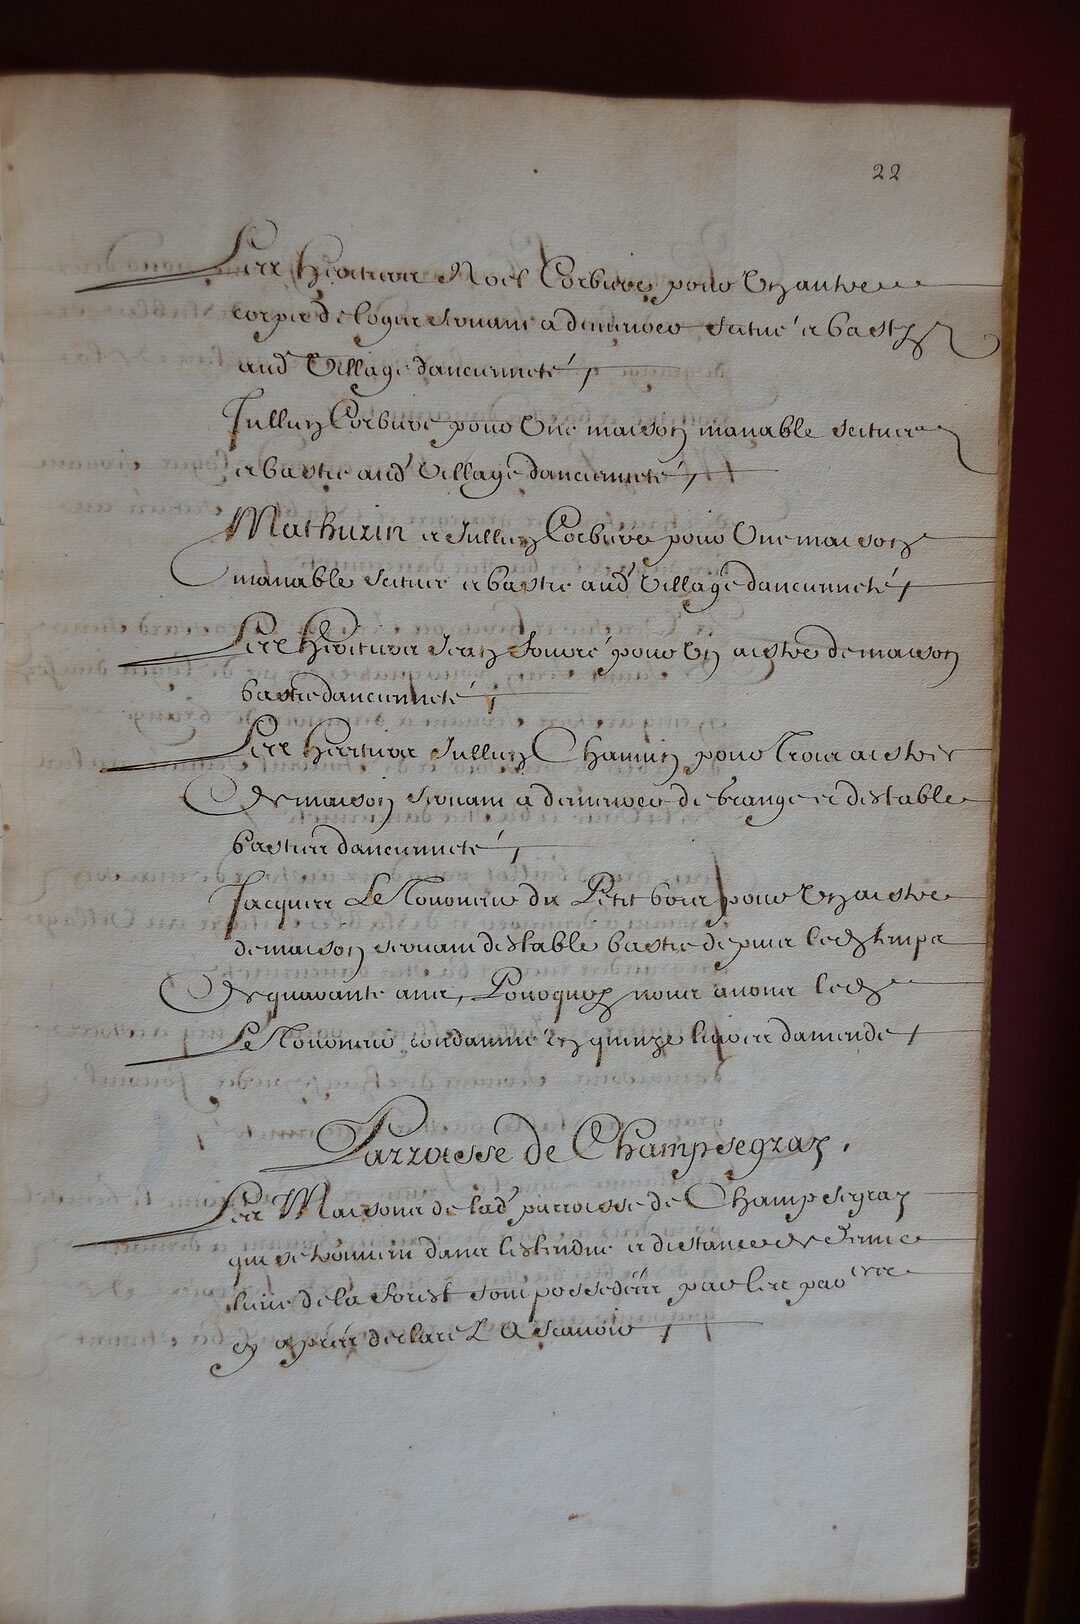 22
Les Heritiers Noel Corbiere pour Un autre
corps de logis servant a demeurer scitué et basty
aud Village dancienneté
Jullien Corbiere pour Une maison manable scituee
et bastie aud Village danciennetè
Mathurin et Jullien Corbiere pour Une maison
manable scituee et bastie aud Village danciennetè
Les Heritiers Jean pour Un aistre de maison
bastie danciennetè
Les Heritiers Jullien Chamin pour Trois aistres
De maison servant a demeurer de Grange et destable
basties danciennetè
Jacques Le du Petit bois pour Un aistre
de maison servant destable bastie depuis led temps
De quarante ans, Pourquoy nous avons led
Le condamné en quinze livres damende
Parroisse de Champsegray.
Les Maisons de lad parroisse de Champsegray
qui se trouvent dans lestendue et distance de demie
lieue de la forest sont possedées par les par
cy apres declarez A Scavoir